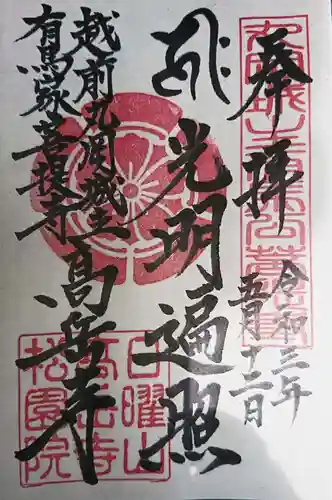 奉拝
令和三年
五月十二日
光明遍照
越前丸岡城主
有馬家菩提寺
高岳寺
日曜山
高岳寺
松園院